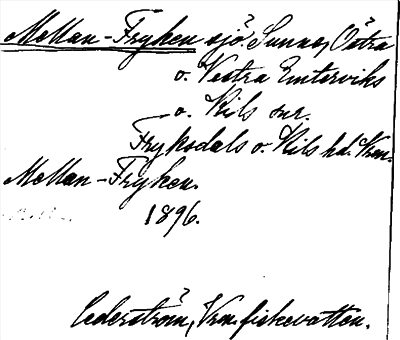 Mellan-Fryken sjö. Sunne, Östra
o. Vestra Emterviks
o. Kils snr.
Frykdals o. Kils hd. Vrm.
Mellan-Fryken.
1896.
Cederström, Vrm. fiskevatten.